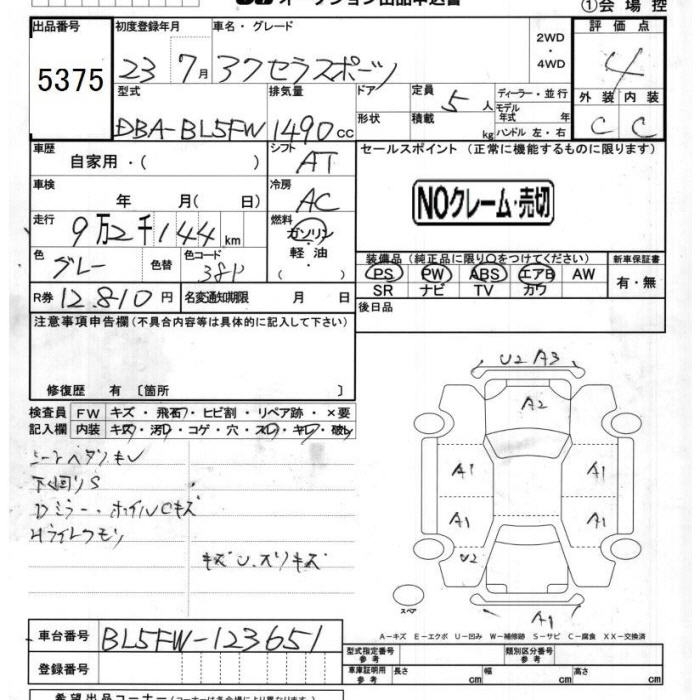 オークション出品申込書
①会場控
出品番号
5375
初度登録年月
車名・グレード
23 7月
アクセラスポーツ
2WD
・
4WD
評価点
4
型式
DBA-BL5FW
排気量
1490cc
ドア
形状
定員
5人
積載
kg
ディーラー・並行
モデル年式 年
ハンドル 左・右
外装 内装
C C
車歴
自家用・( )
シフト
AT
セールスポイント (正常に機能するものに限ります)
NOクレーム・売切
車検
年 月( 日)
冷房
AC
走行
9万2千144 km
燃料
ガソリン
・
軽油
( )
色
グレー
色替
色コード
38P
装備品 (純正品に限り○をつけてください)
PS PW ABS エアB AW
SR ナビ TV カワ
新車保証書
有・無
R券 12810円
名変通知期限 月 日
後日品
注意事項申告欄 (不具合内容等は具体的に記入して下さい)
修復歴 有 〔箇所 〕
検査員記入欄
FW キズ・飛石・ヒビ割・リペア跡・×要
内装 キズ・汚レ・コゲ・穴・スレ・キレ・破レ
シートヘタリキレ
下回りS
Dミラー・ホイルCキズ
Hライトクモリ
キズU.スリキズ
U2 A3
A2
A1 A1
A1 A1
U2
A1
スペア
A-キズ E-エクボ U-凹み W-補修跡 S-サビ C-腐食 XX-交換済
車台番号
BL5FW-123651
登録番号
型式指定番号
参考
類別区分番号
参考
車庫証明用
参考
長さ cm
幅 cm
高さ cm
希望出品コーナー